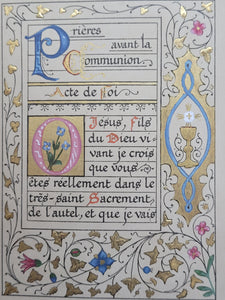 Prières
avant la
Communion.
Acte de Foi
O Jesus, Fils
du Dieu vi-
vant je crois
que vous
êtes réellement dans le
très-saint Sacrement
de l'autel, et que je vais